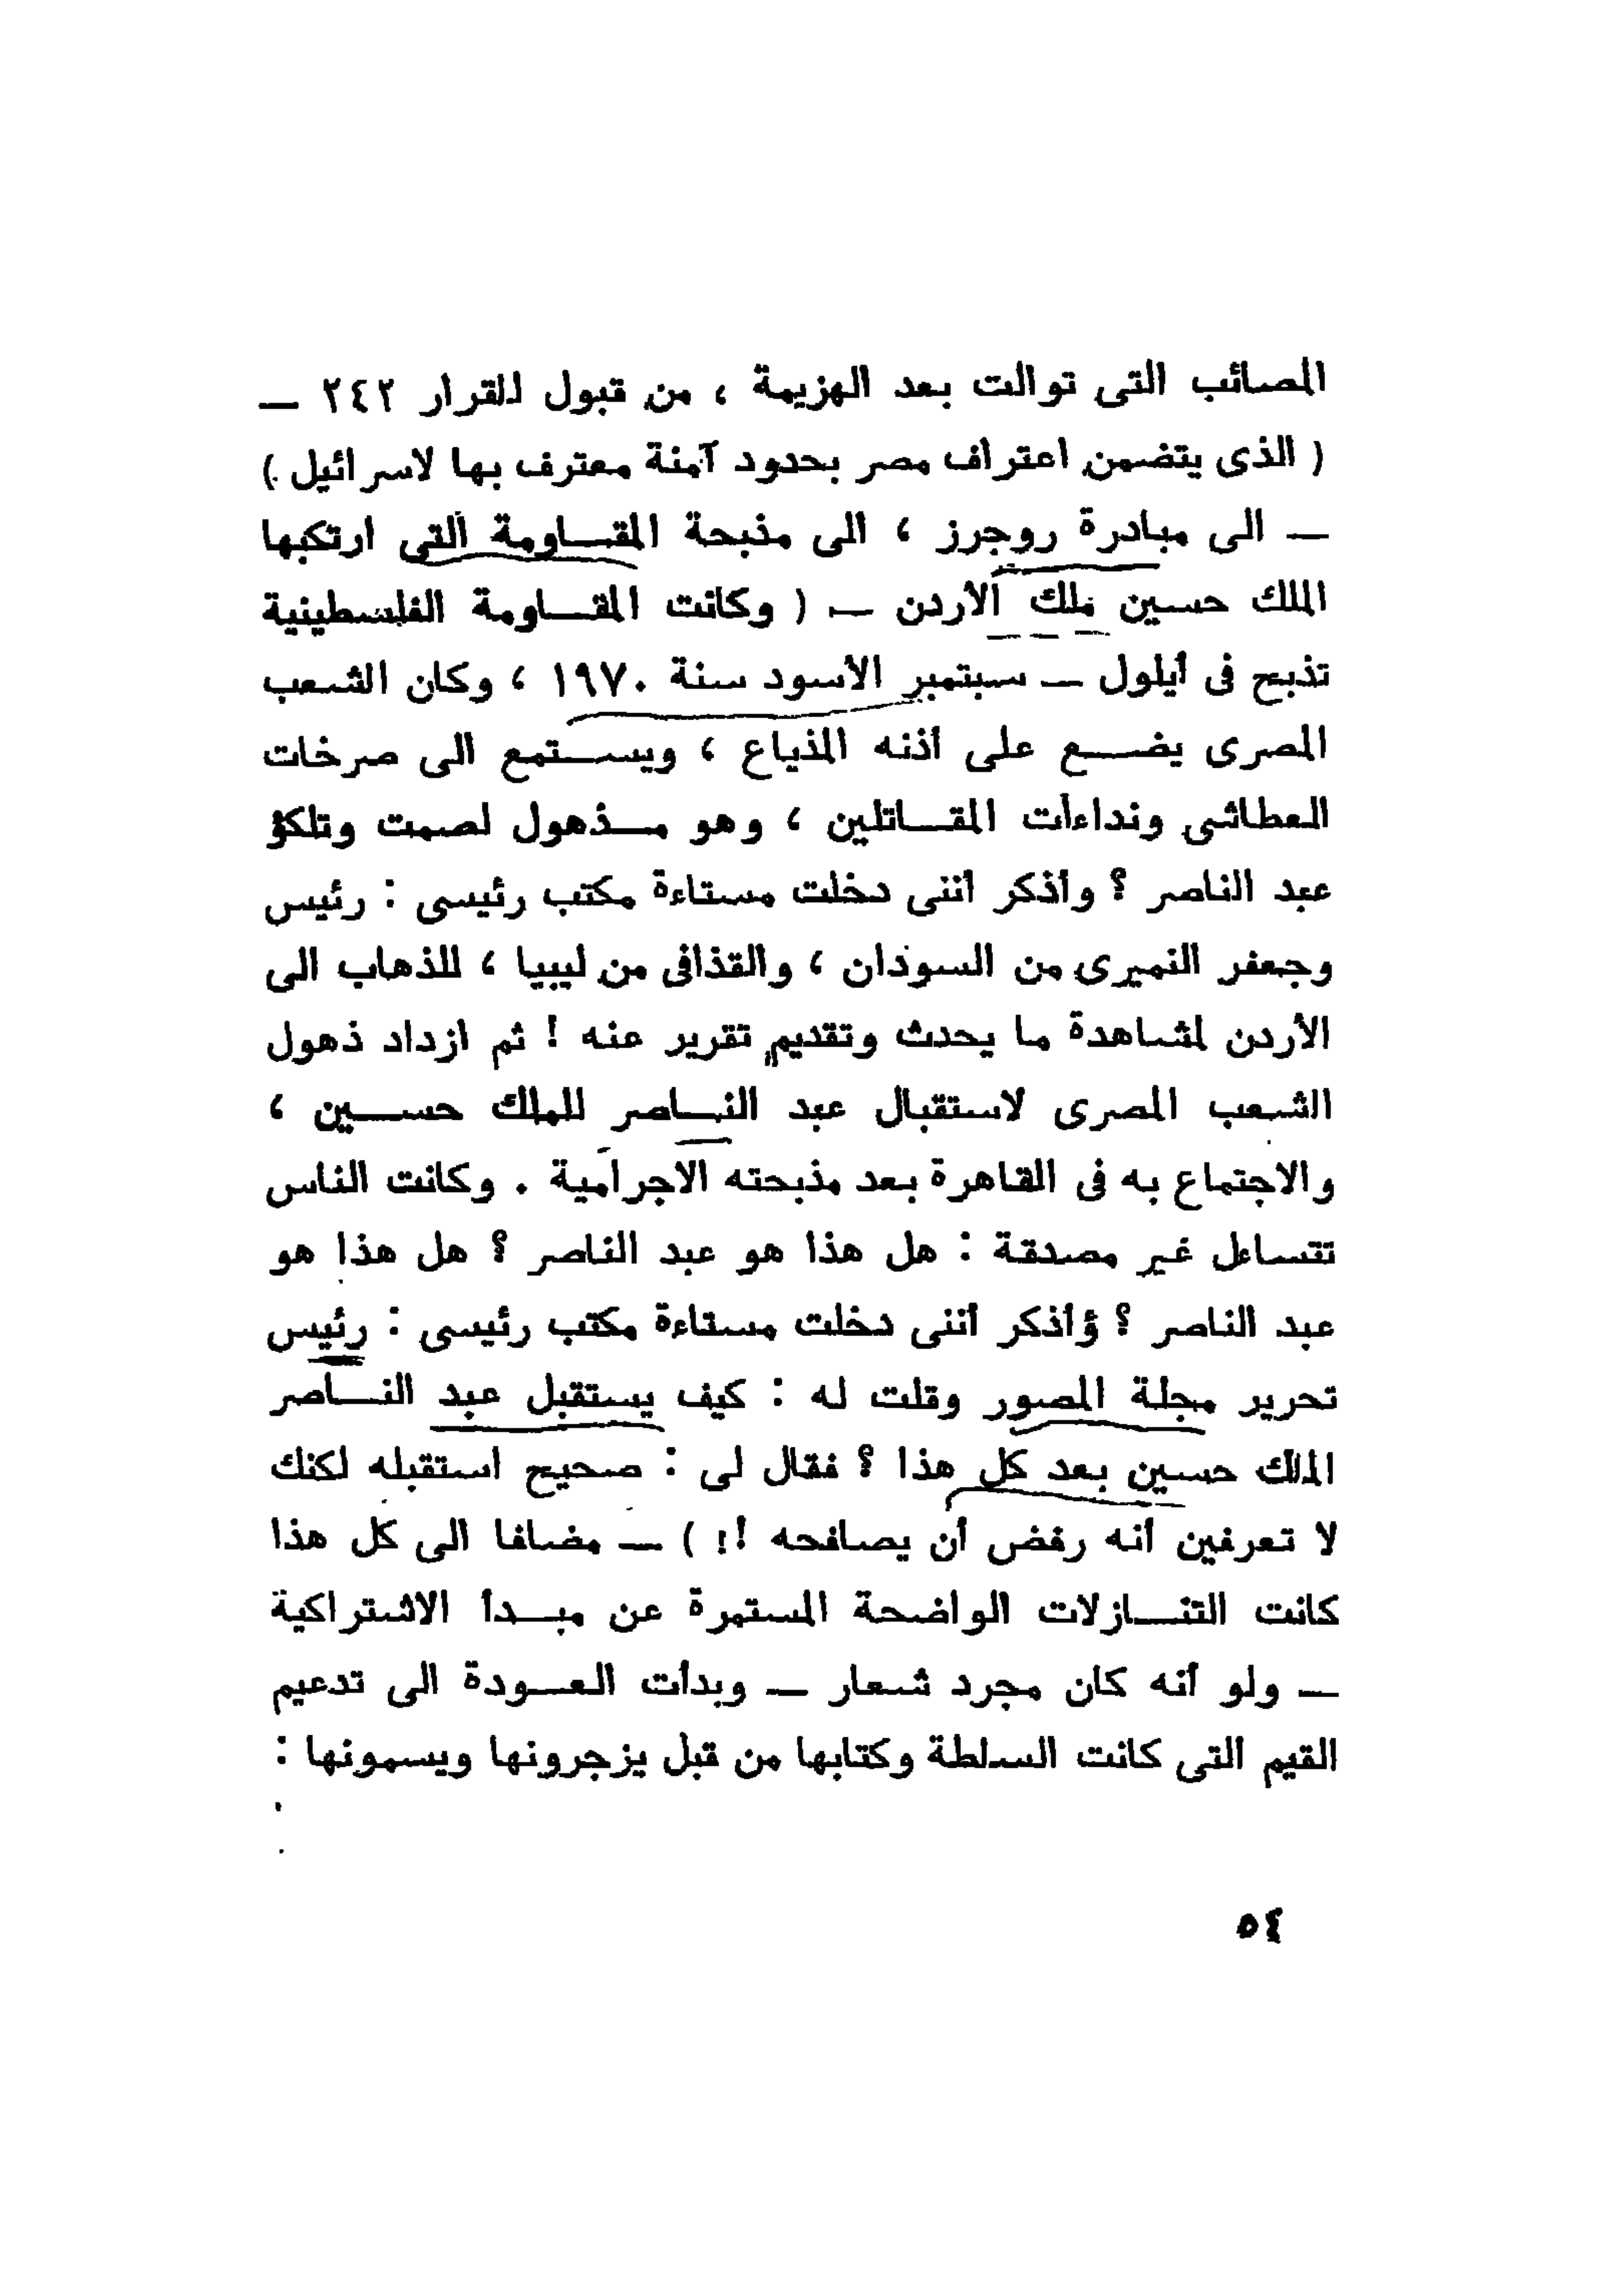 المصائب التى توالت بعد الهزيمة ، من قبول للقرار ٢٤٢ —
( الذى يتضمن اعتراف مصر بحدود آمنة معترف بها لاسرائيل )
— الى مبادرة روجرز ، الى مذبحة المقـاومة التى ارتكبها
الملك حسين ملك الأردن — ( وكانت المقـاومة الفلسطينية
تذبح فى أيلول — سبتمبر الأسود سنة ١٩٧٠ ، وكان الشعب
المصرى يضـع على أذنه المذياع ، ويسـتمع الى صرخات
العطاشى ونداءات المقـاتلين ، وهو مـذهول لصمت وتلكؤ
عبد الناصر ؟ وأذكر أننى دخلت مستاءة مكتب رئيسى : رئيس
وجعفر النميرى من السودان ، والقذافى من ليبيا ، للذهاب الى
الأردن لمشاهدة ما يحدث وتقديم تقرير عنه ! ثم ازداد ذهول
الشعب المصرى لاستقبال عبد النـاصر للملك حسـين ،
والاجتماع به فى القاهرة بعد مذبحته الاجرامية . وكانت الناس
تتساءل غير مصدقة : هل هذا هو عبد الناصر ؟ هل هذا هو
عبد الناصر ؟ وأذكر أننى دخلت مستاءة مكتب رئيسى : رئيس
تحرير مجلة المصور وقلت له : كيف يستقبل عبد النـاصر
الملك حسين بعد كل هذا ؟ فقال لى : صحيح استقبله لكنك
لا تعرفين أنه رفض أن يصافحه !! ) — مضافا الى كل هذا
كانت التنـازلات الواضحة المستمرة عن مبـدأ الاشتراكية
— ولو أنه كان مجرد شعار — وبدأت العـودة الى تدعيم
القيم التى كانت السلطة وكتابها من قبل يزجرونها ويسمونها :
٥٤